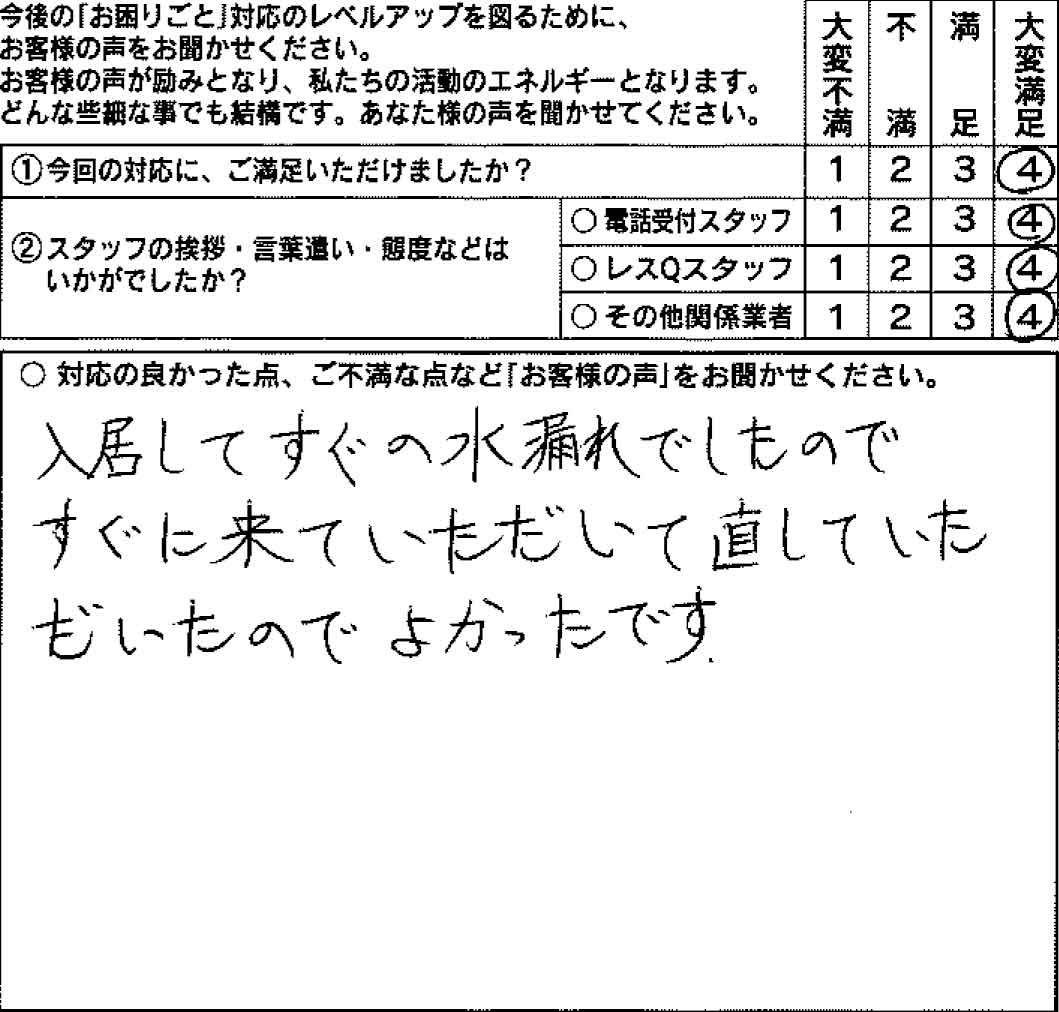 今後の「お困りごと」対応のレベルアップを図るために、
お客様の声をお聞かせください。
お客様の声が励みとなり、私たちの活動のエネルギーとなります。
どんな些細な事でも結構です。あなた様の声を聞かせてください。
大変不満 不満 満足 大変満足
①今回の対応に、ご満足いただけましたか？ 1 2 3 4
②スタッフの挨拶・言葉遣い・態度などは
いかがでしたか？
○電話受付スタッフ 1 2 3 4
○レスQスタッフ 1 2 3 4
○その他関係業者 1 2 3 4
○ 対応の良かった点、ご不満な点など「お客様の声」をお聞かせください。
入居してすぐの水漏れでしたので
すぐに来ていただいて直していた
だいたのでよかったです.